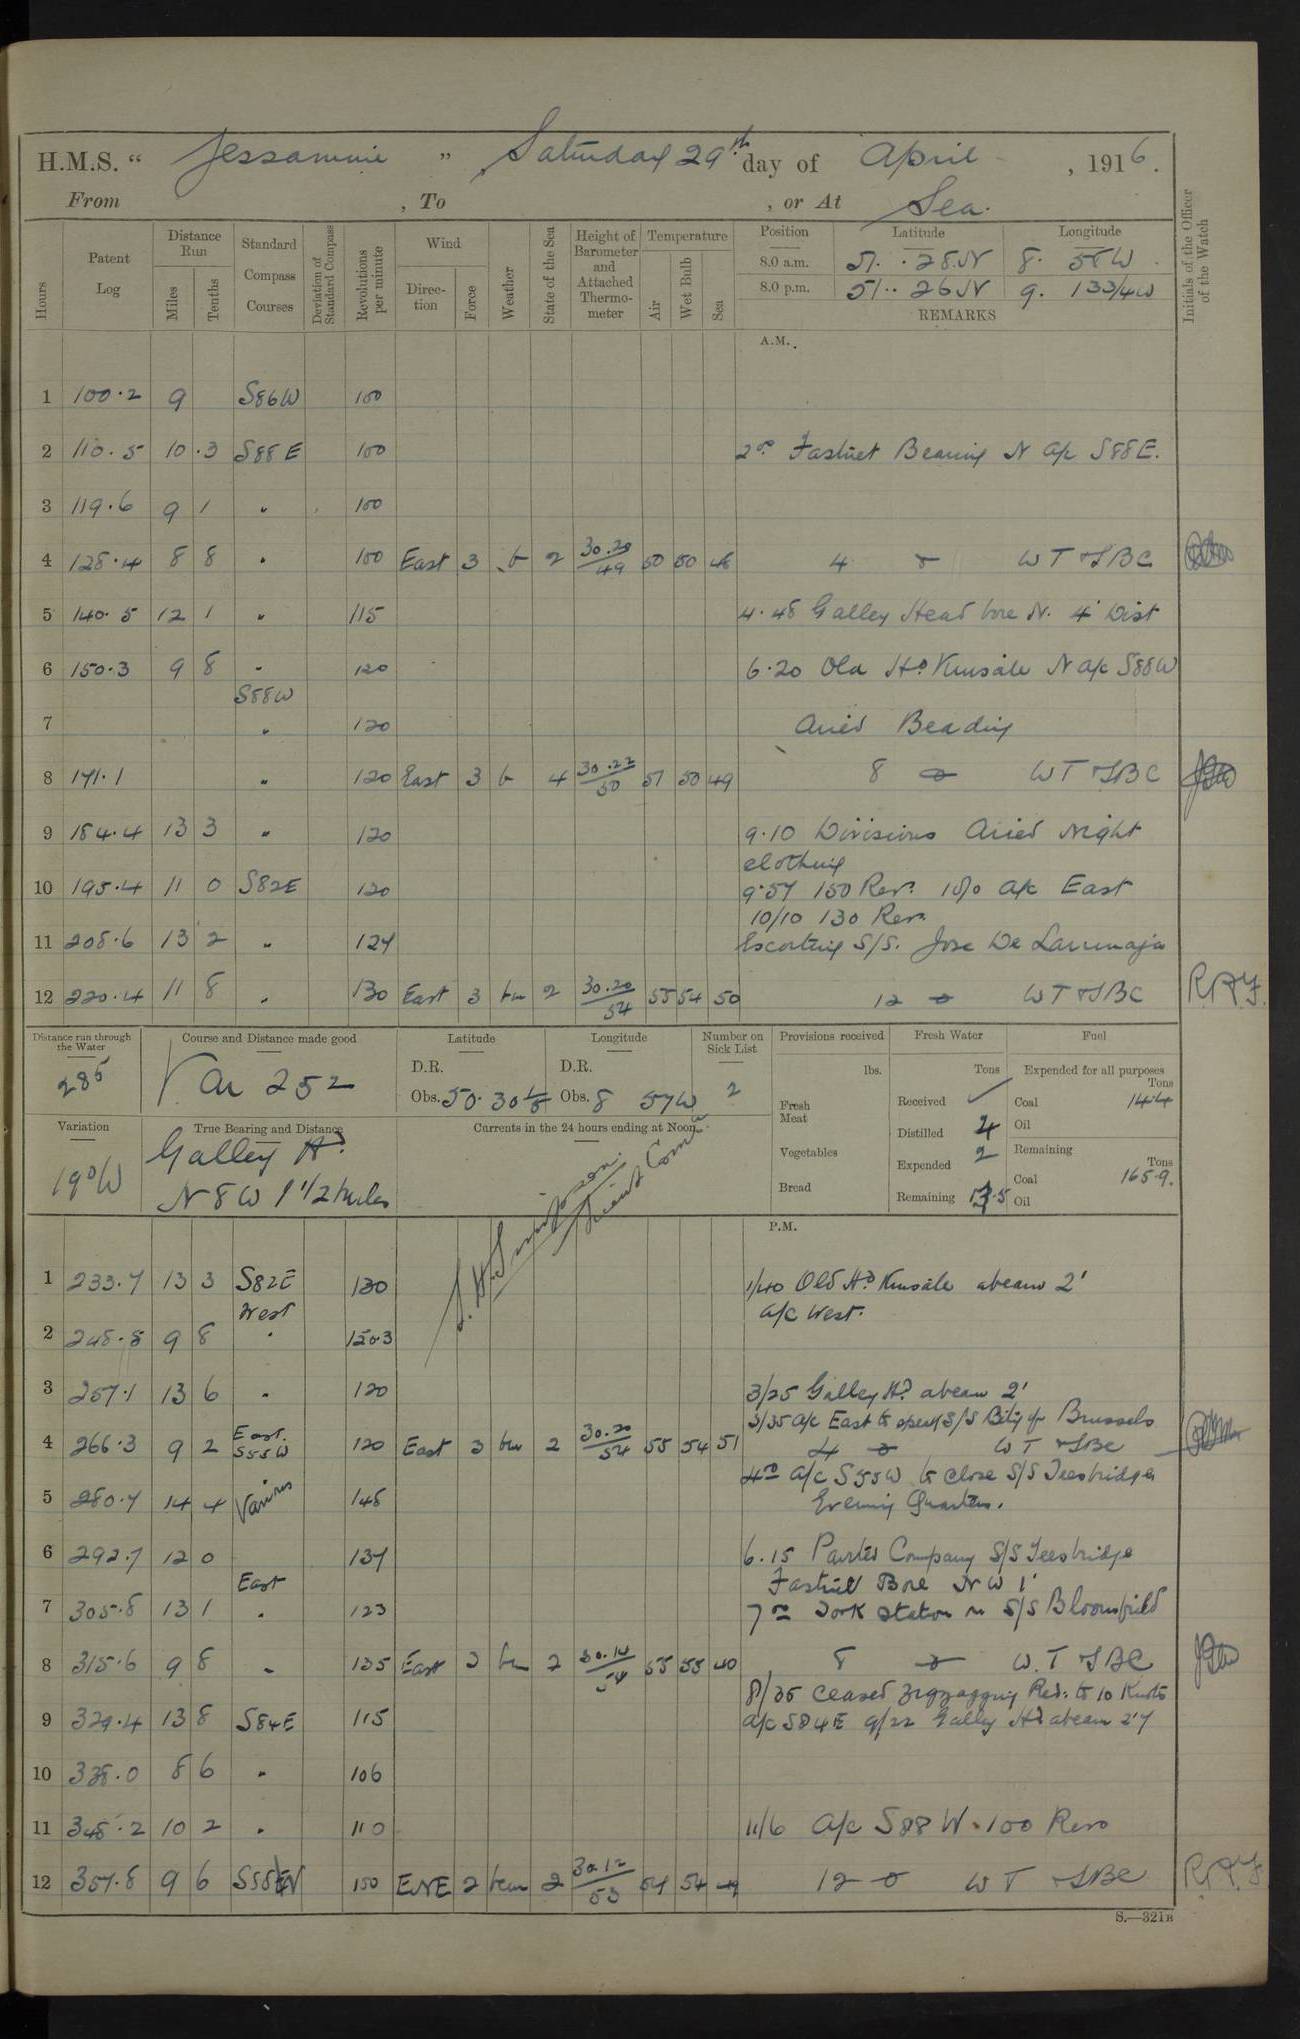 H.M.S. " Jessamine " Saturday 29th day of April , 1916.
From , To , or At Sea.
Hours Patent Log Distance Run Miles Tenths Standard Compass Courses Deviation of Standard Compass Revolutions per minute Wind Direction Force Weather State of the Sea Height of Barometer and Attached Thermometer Temperature Air Wet Bulb Sea Position Latitude Longitude Initials of the Officer of the Watch
8.0 a.m. 51. . 28N 8. 58W
8.0 p.m. 51.. 26N 9. 13 3/4W
REMARKS
A.M.
1 100.2 9 S86W 100
2 110.5 10 .3 S88E 100 2.00 Fastnet Bearing N a/c S88E.
3 119.6 9 1 " 100
4 128.4 8 8 " 100 East 3 b 2 30.20/49 50 50 48 4 WT & SBC
5 140.5 12 1 " 115 4.48 Galley Head bore N. 4' Dist
6 150.3 9 8 " 120 6.20 Old Hd Kinsale N a/c S88W
S88W
7 " 120 Aired Bedding
8 171.1 " 120 East 3 b 4 30.22/50 51 50 49 8 WT & SBC
9 184.4 13 3 " 120 9.10 Divisions Aired Night
clothing
10 195.4 11 0 S82E 120 9.57 150 Rev. a/c East
10/10 130 Rev.
11 208.6 13 2 " 127 Escorting S/S. Jose De
12 220.4 11 8 " 130 East 3 bm 2 30.20/54 55 54 50 12 WT & SBC R.A.F.
Distance run through the Water Course and Distance made good Latitude Longitude Number on Sick List Provisions received Fresh Water Fuel
285 Var 252 D.R. D.R. 2 lbs. Tons Expended for all purposes Tons
Obs. 50. 30 1/5 Obs. 8 57W Fresh Meat Received Coal 14.4
Distilled 4 Oil
Variation True Bearing and Distance Currents in the 24 hours ending at Noon Vegetables Expended 2 Remaining Tons
19°W Galley Hd. Bread Remaining 13.5 Coal 165.9.
N 8 W 9 1/2 miles Oil
P.M.
1 233.7 13 3 S82E 130 1/40 Old Hd Kinsale abeam 2'
West a/c West.
2 248.8 9 8 " 120.3
3 257.1 13 6 " 120 3/25 Galley Hd abeam 2'
3/35 a/c East to speak S/S City of Brussels
4 266.3 9 2 East. S55W 120 East 3 bm 2 30.20/54 55 54 51 4 WT & SBC
4.00 a/c S55W to close S/S Teesbridge
5 280.7 14 4 Various 148 Evening Quarters.
6 292.7 12 0 137 6.15 Parted Company S/S Teesbridge
East Fastnet Bore NW 1'
7 305.8 13 1 " 123 7.00 Took station on S/S Bloomfield
8 315.6 9 8 " 125 East 3 bm 2 30.14/54 55 53 50 8 W.T & SBC
8/35 Ceased zigzagging Red. to 10 Knots
9 329.4 13 8 S84E 115 a/c S84E 9/22 Galley Hd abeam 2'7
10 338.0 8 6 " 106
11 348.2 10 2 " 110 11/6 a/c S88W . 100 Revs
12 357.8 9 6 100 ENE 2 bcm 2 30.12/53 54 54 49 12 WT & SBC R.A.F.
S.—321B